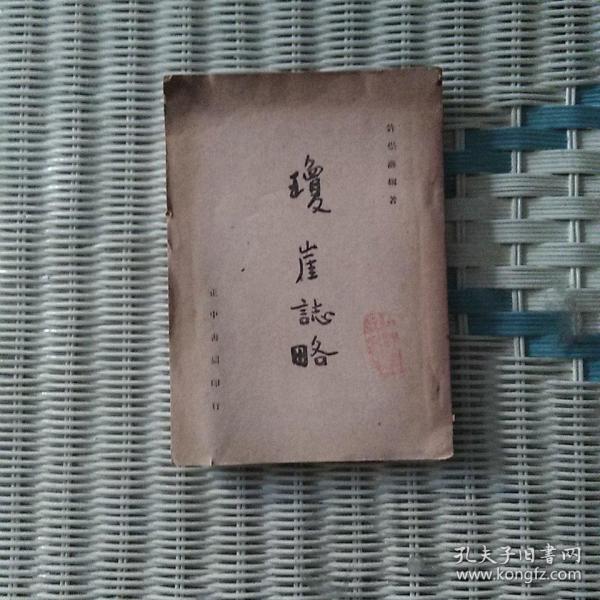 許崇灝編著
瓊崖誌略
正中書局印行
孔夫子旧書网
www.kongfz.com